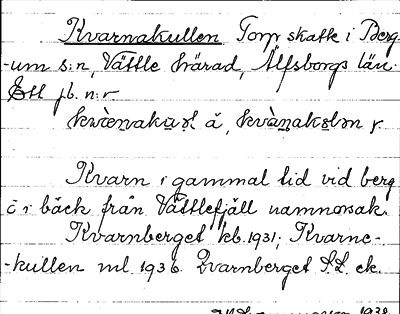 Kvarnakullen Torp skatte i Berg-
-um s:n, Vättle härad, Älfsborgs län.
Ett jb. n:r
kwàrṇakuḷ å, kvàṇakọlən y.
Kvarn i gammal tid vid berg
o i bäck från Vättlefjäll namnorsak.
Kvarnberget kb. 1931; Kvarne-
-kullen ml 1936. Qvarnberget S.L. ek.
1938